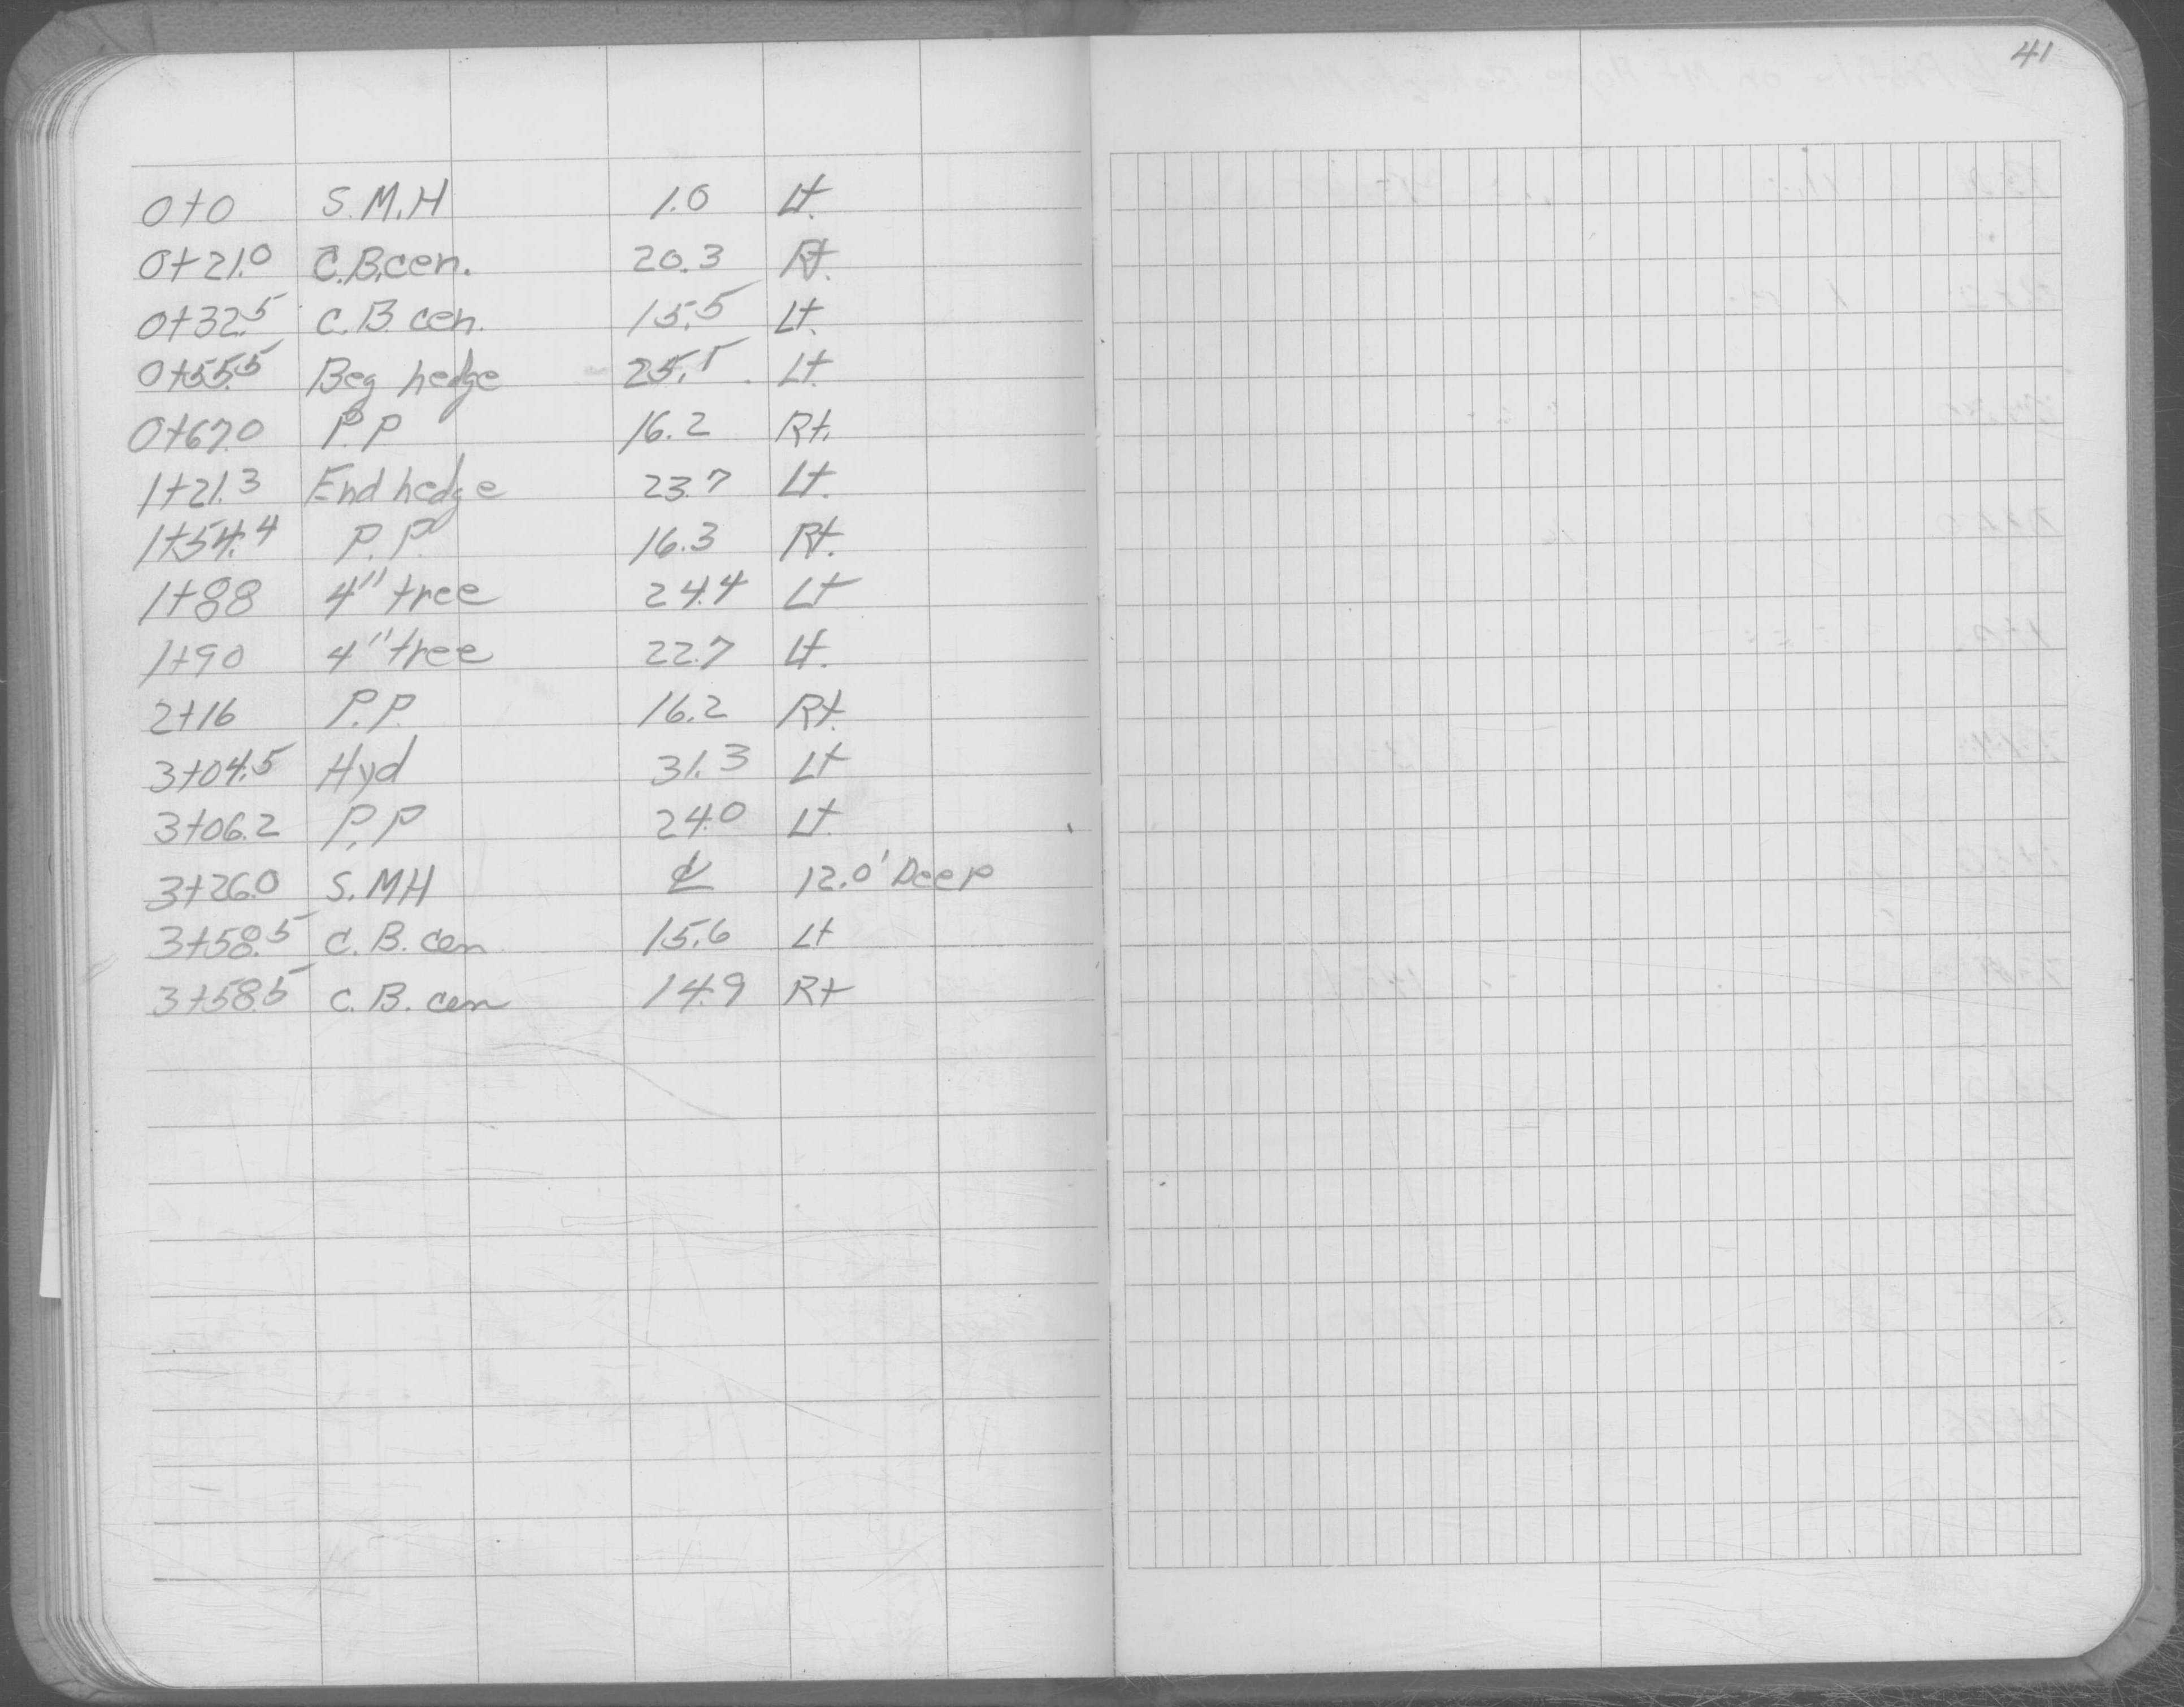 41
0+0 S.M.H 1.0 Lt.
0+21.0 C.B.cen. 20.3 Rt.
0+32.5 C.B cen. 15.5 Lt.
0+55.5 Beg hedge 25.5 Lt.
0+67.0 P.P 16.2 Rt.
1+21.3 End hedge 23.7 Lt.
1+54.4 P.P. 16.3 Rt.
1+88 4" tree 24.4 Lt
1+90 4" tree 22.7 Lt.
2+16 P.P. 16.2 Rt.
3+04.5 Hyd 31.3 Lt
3+06.2 P.P 24.0 Lt.
3+26.0 S.MH ℄ 12.0' Deep
3+58.5 C.B. cen 15.6 Lt
3+58.5 C.B. cen 14.9 Rt